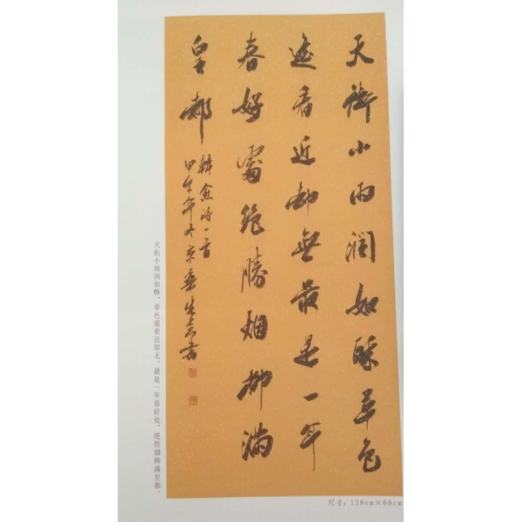 天街小雨潤如酥草色
遥看近却無最是一年
春好處絕勝烟柳滿
皇都
韓愈诗一首
甲午年
天街小雨润如酥，草色遥看近却无。最是一年春好处，绝胜烟柳满皇都。
尺寸：138cm×68cm